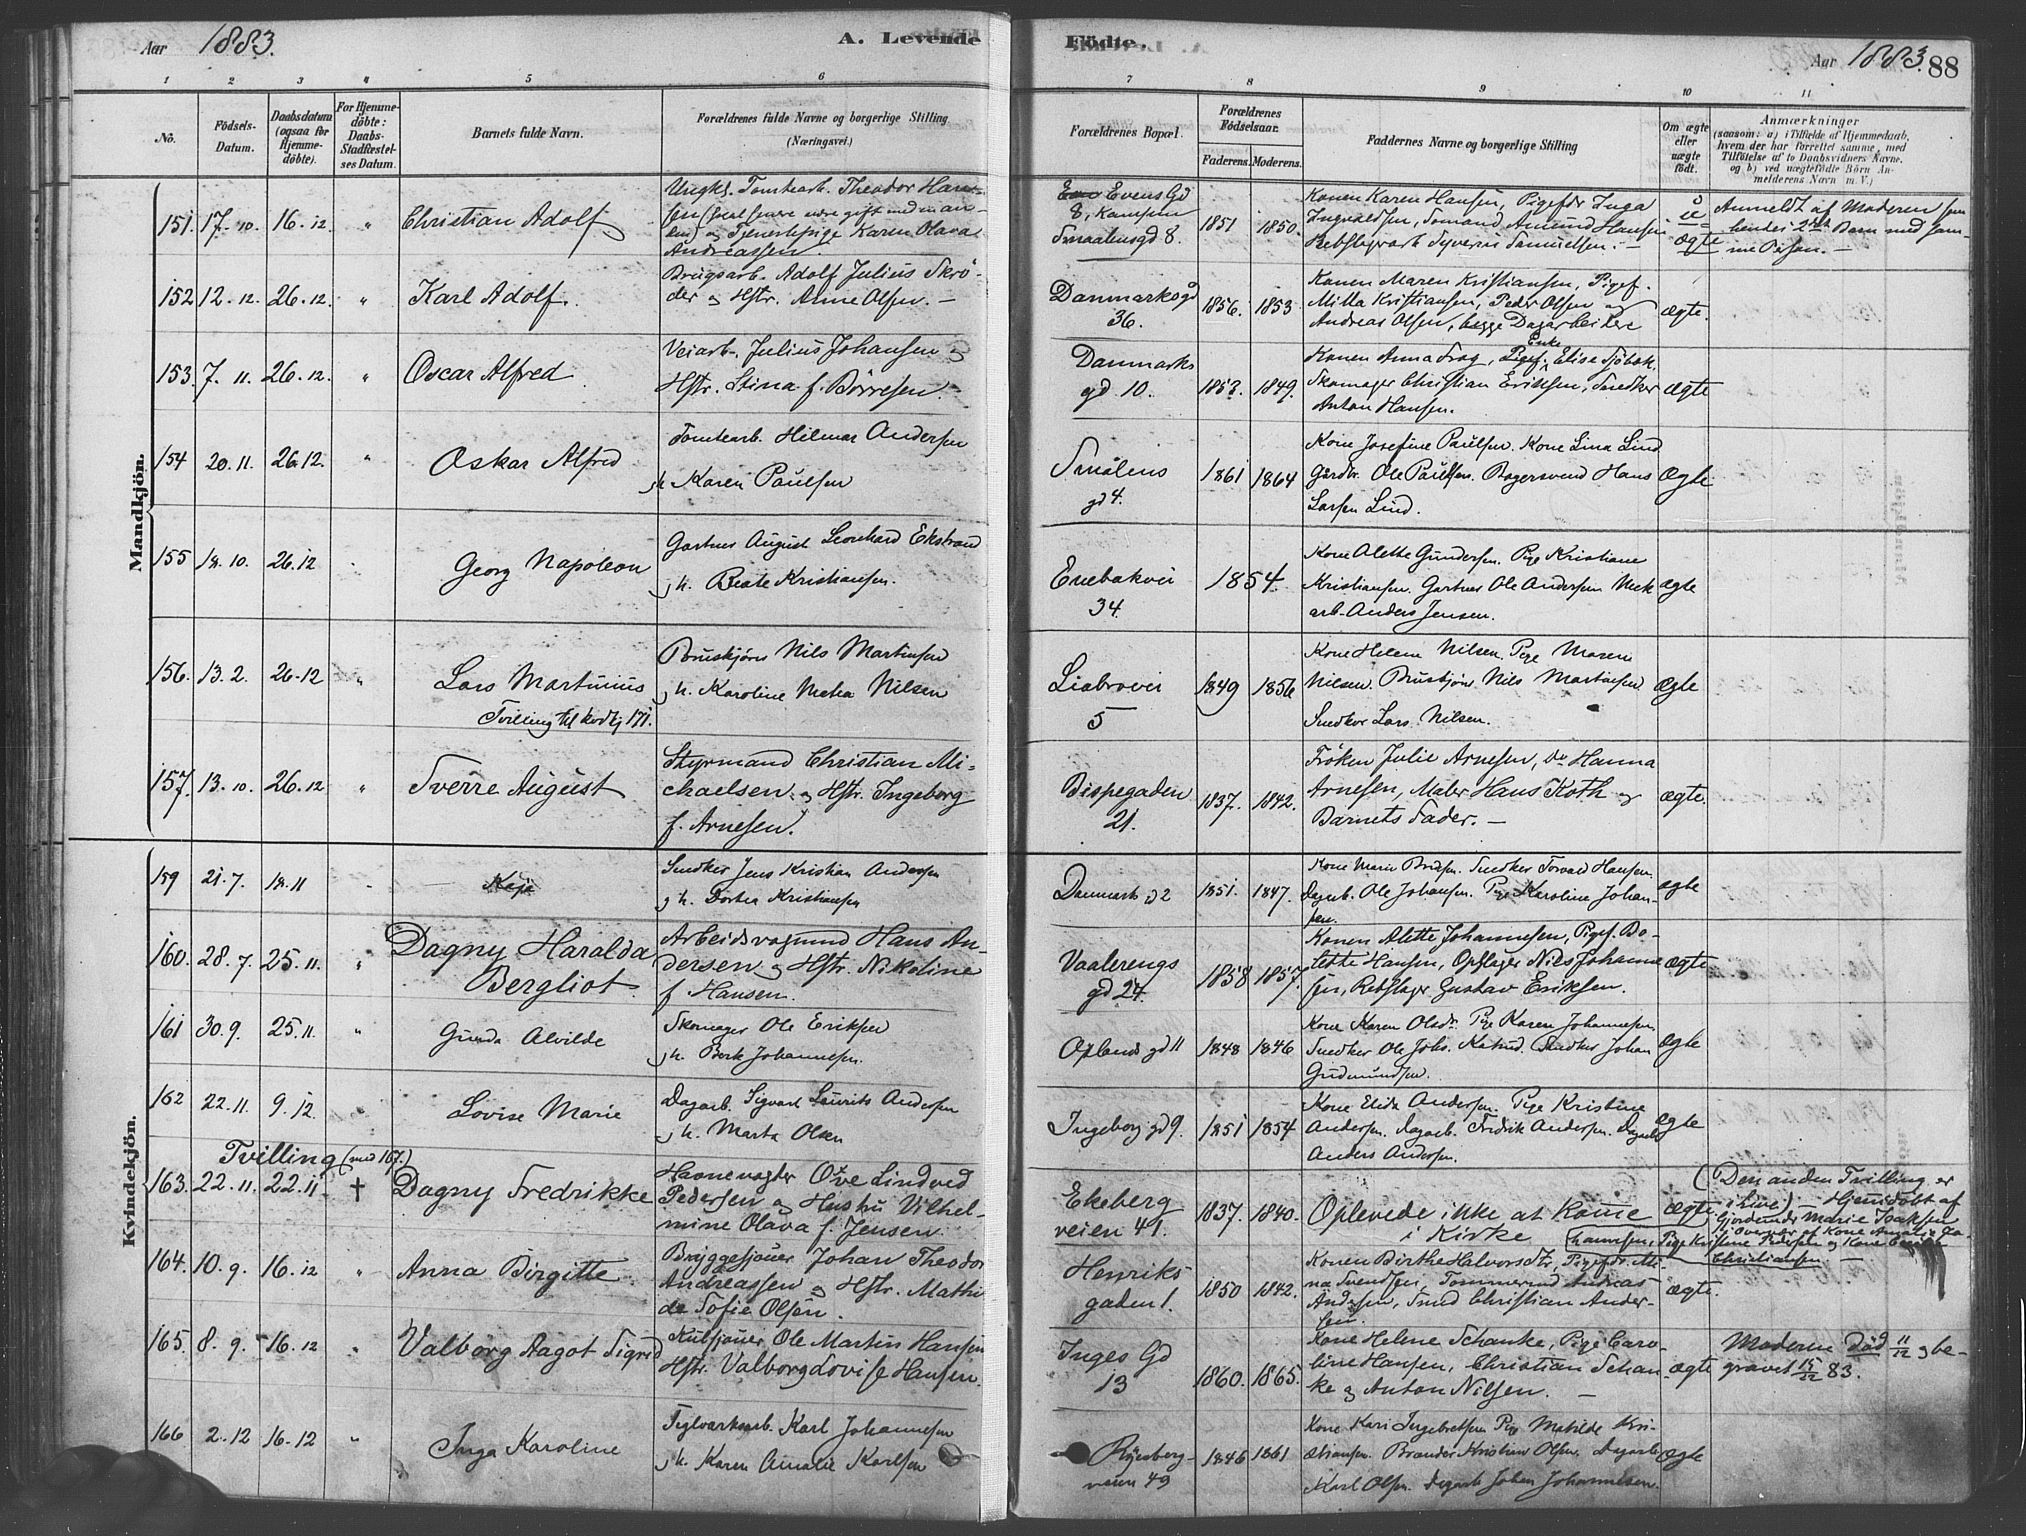 Aar 1883.
A. Levende
Fødte.
Aar 1883. 88
1 2 3 4 5 6 7 8 9 10 11
No.
Födsels-
Datum.
Daabsdatum
(ogsaa for
Hjemme-
döbte).
For Hjemme-
döbte:
Daabs-
Stadfæstel-
ses Datum.
Barnets fulde Navn.
Forældrenes fulde Navne og borgerlige Stilling
(Næringsvei.)
Forældrenes Bopæl.
Forældrenes
Födselsaar.
Faderens. Moderens.
Faddernes Navne og borgerlige Stilling
Om ægte
eller
uægte
födt.
Anmærkninger
(saasom: a) i Tilfælde af Hjemmedaab,
hvem der har forrettet samme, med
Tilföielse af to Daabsvidners Navne.
og b) ved uægtefödte Börn An-
melderens Navn m. V.)
Mandkjön.
151. 17. 10. 16. 12 Christian Adolf
Ungk. Tomtearb. Theodor Han-
sen
og Tjenestepige Karen Olava
Andreassen.
Evens Gd
8, Kampen
Smaalensgd 8.
1851 1850.
Konen Karen Hansen, Pigefdr Inga
Ingvaldsen, Tomtmand Amund Hansen
Rebslagerarb Syverin Samuelsen. —
u
ægte
Anmeldt af Moderen som
hendes 2det Barn med sam-
me Person. —
152 12. 12. 26. 12. " Karl Adolf.
Brugsarb. Adolf Julius Skrö-
der og Hstr. Anne Olsen. —
Danmarksgd
36.
1856. 1853
Konen Maren Kristiansen, Pigef.
Milla Kristiansen, Peder Olsen og
Andreas Olsen, begge Dagarbeidere
ægte.
153. 7. 11. 26. 12. " Oscar Alfred
Veiarb. Julius Johansen og
Hstr. Stina f. Börresen.
Danmarks
gd 10.
1853. 1849.
Konen Anna Frog, Enke Elise Sjöbak,
Skomager Christian Eriksen, Snedker
Anton Hansen.
ægte
154 20. 11. 26. 12. " Oskar Alfred
Tomtearb. Hilmar Andersen
h. Karen Paulsen
Smålens
gd 4.
1861 1864
Kone Josefine Paulsen. Kone Lina Lind
Gårdbr. Ole Paulsen. Bagersvend Hans
Larsen Lind.
Ægte
155 18. 10. 26. 12 Georg Napoleon
Gartner August Leonhard Ekstrand
h. Beate Kristiansen.
Enebakvei
34.
1854.
Kone Alette Gundersen. Pige Kristiane
Kristiansen. Gartner Ole Andersen Mek
arb. Anders Jensen.
ægte
156. 13. 2. 26. 12 " Lars Martinius
Tvilling til kvdkj 171.
Bruskjörer Nils Martinsen
h. Karoline Metea Nilsen
Liabrovei
5
1849 1856
Kone Helene Nilsen. Pige Maren
Nilsen. Bruskjörer Nils Martinsen
Snedker Lars Nilsen.
Ægte
157. 13. 10. 26. 12 " Sverre August
Styrmand Christian Mi-
chaelsen og Hstr. Ingeborg
f. Arnesen.
Bispegaden
21.
1837. 1842.
Fröken Julie Arnesen, Do Hanna
Arnesen, Maler Hans Koth og
Barnets Fader. —
ægte.
Kvindekjön.
159 21. 7. 18. 11 Kaja
Snedker Jens Kristian Andersen
h. Dortea Kristiansen
Danmarks gd 2
1851. 1847.
Kone Marie Bredesen. Snedker Torvald Hansen.
Dagarb. Ole Johansen. Pige Karoline Johan-
sen.
ægte
160. 28. 7. 25. 11. " Dagny Haralda
Bergliot.
Arbeidsvognmd Hans An-
dersen og Hstr. Nikoline
f. Hansen.
Vaalerengs
gd 24.
1858 1857.
Konen Alette Johannesen, Pigef. Bo-
lette Hansen, Opslager Niels Johanne
sen, Rebslager Gustav Eriksen.
ægte
161 30. 9. 25. 11. " Gunda Alvilde
Skomager Ole Eriksen
h. Berte Johannesen.
Oplands gd 11
1848 1846
Kone Karen Olsdr. Pige Karen Johannesen.
Snedker Ole Johs. Katrud. Snedker Johan
Gudmundsen.
Ægte
162 22. 11. 9. 12. Lovise Marie
Dagarb. Sigvart Laurits Andersen
h. Marta Olsen
Ingeborg gd 9.
1851 1854
Kone Elida Andersen. Pige Kristine
Andersen. Dagarb. Fredrik Andersen. Dagarb
Anders Andersen.
ægte
Tvilling (med 167.)
163. 22. 11. 22. 11 † Dagny Fredrikke
Havnevagter Ove Lindved
Pedersen og Hustru Vilhel-
mine Olava f. Jensen.
Ekeberg
veien 41.
1837. 1840.
Oplevede ikke at komme
i Kirke
ægte.
(Den anden Tvilling er
i Live) Hjemdöbt af
Gjordemdr Marie Isaksen
Overvær. af Kone Amalie Jo-
hannesen, Pige Kristine Pedersen og Kone
Christiansen
164. 10. 9. 16. 12 " Anna Birgitte
Bryggesjouer Johan Theodor
Andreassen og Hstr. Mathi
da Sofie Olsen.
Henriks-
gaden 1.
1850 1842.
Konen Birthe Halvorsdtr, Pigefdr. Mi-
na Svendsen, Tømmermd Andreas
Andersen, Smed Christian Ander-
sen.
ægte.
165. 8. 9. 16. 12 " Valborg Aagot Sigrid
Kulsjouer Ole Martin Hansen
Hstr. Valborg Lovise Hansen.
Inges Gd
13
1860. 1865.
Kone Helene Schanke, Pige Caro-
line Hansen, Christian Schan-
ke og Anton Nilsen. —
ægte
Moderen död 11/12 og be-
gravet 15/12 83.
166 2. 12 16. 12 " Inga Karoline
Teglværksarb. Karl Johannesen
h. Karen Amalie Karlsen
Ryenberg-
veien 49
1846 1861
Kone Kari Ingebretsen Pige Matilde Kri-
stiansen. Brander Kristian Olsen. Dagarb
Karl Olsen. Dagarb Johan Johannesen.
ægte